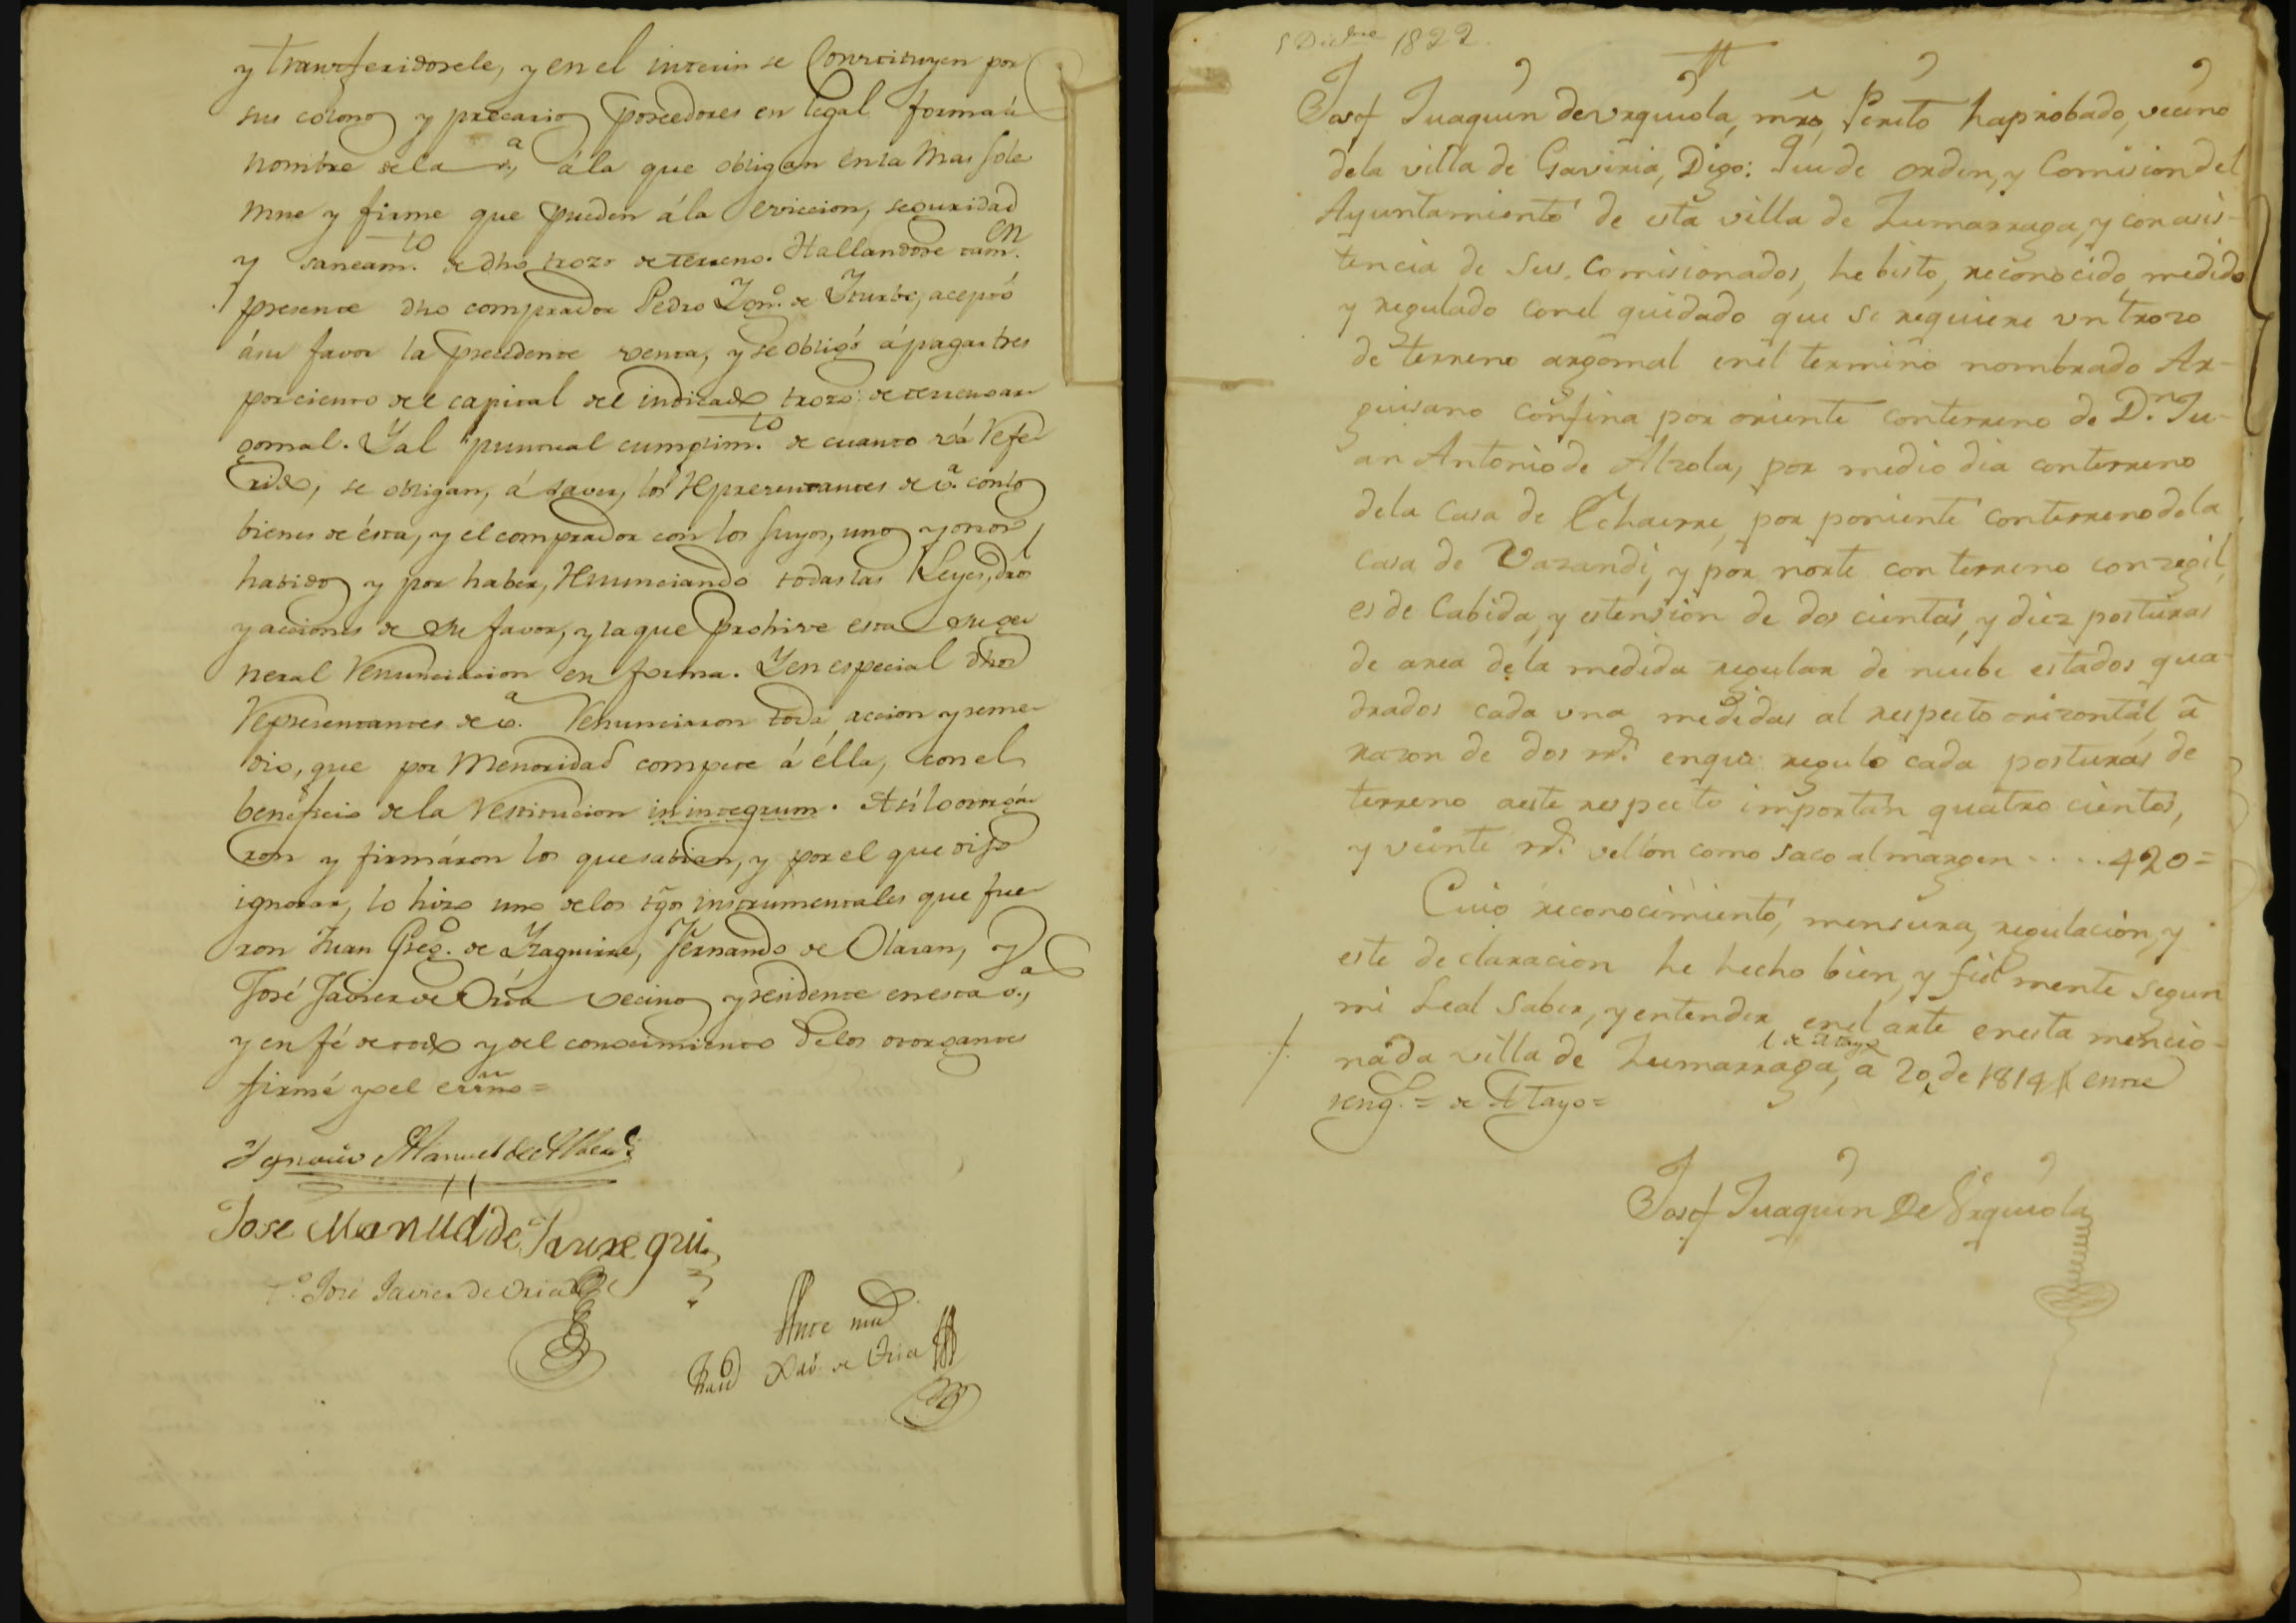 y transferidosele, y en el interin se Constituyen por
sus colonos y precarios poseedores en legal forma á
nombre de la v.ª, á la que obligan en la mas sole
mne y firme que pueden á la eviccion, seguridad
y saneam.to de dho trozo de terreno. Hallandose tam.en
presente dho comprador Pedro Ign.º de Yturbe, aceptó
á su favor la precedente venta, y se obligó á pagar tres
por ciento del capital del indicado trozo de terreno ar
gomal. Y al puntual cumplim.to de cuanto vá refe
rido, se obligan, á saver, los representantes de v.ª con los
bienes de ésta, y el comprador con los suyos, unos y otros
habidos y por haber, renunciando todas las Leyes, dros
y acciones de su favor, y la que prohive esta su ge
neral renunciacion en forma. Y en especial dhos
representantes de v.ª renunciaron toda accion y reme
dio, que por menoridad compete á élla, con el
beneficio de la restitucion in integrum. Asi lo otorgá
ron y firmáron los que sabian, y por el que dijo
ignorar, lo hizo uno de los tgõs instrumentales que fue
ron Juan Greg.º de Yzaguirre, Fernando de Olaran, y
José Javier de Oria vecinos y residente en esta v.ª,
y en fé de todo y del conocimiento de los otorgantes
firmé yo el errño=
Ygnacio Manuel de
Jose Manuel de Jauregui
t.º José Javier de Oria
Ante mi
de Oria
5 Dicbre 1822.
Josef Juaquin de Vrquiola, mrõ Perito haprobado, vecino
dela villa de Gaviria, Digo: Que de orden, y Comision del
Ayuntamiento de esta villa de Zumarraga, y con asis-
tencia de sus Comisionados, he bisto, reconocido, medido
y regulado conel quidado que se requiere vn trozo
de terreno argomal enel termino nombrado Ar-
guisano confina por oriente conterreno de D.n Ju-
an Antonio de Alzola, por medio dia conterreno
dela Casa de Echaerre, por poniente conterreno dela
casa de Vazandi, y por norte con terreno conzegil,
es de Cabida, y estension de dos cientas, y diez posturas
de area dela medida regular de nuebe estados qua-
drados cada vna medidas al respecto orizontal, á
razon de dos rr.s enque regulo cada posturas de
terreno aeste respecto importan quatro cientos,
y veinte rr.s vellon como saco al margen .... 420=
Cuio reconocimiento, mensura, regulacion, y
este declaracion he hecho bien, y fiel mente segun
mi Leal Saber, y entender enel arte enesta mencio-
nada villa de Zumarraga, á 20, de 1819 (entre
de Mayo
reng.s = de Mayo=
Josef Juaquin De Vrquiola